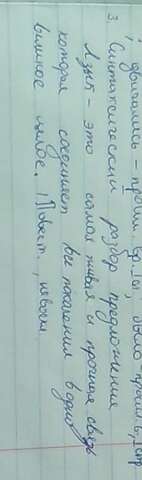 двигались - прош. вр., было - прош. в.,
3. Синтаксический разбор предложения
Язык - это самая живая и прочная связь
которая соединяет все поколения в одно
великое целое. (Повест., невоскл.